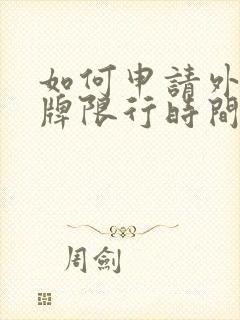 如何申請外
牌限行時間
周劍